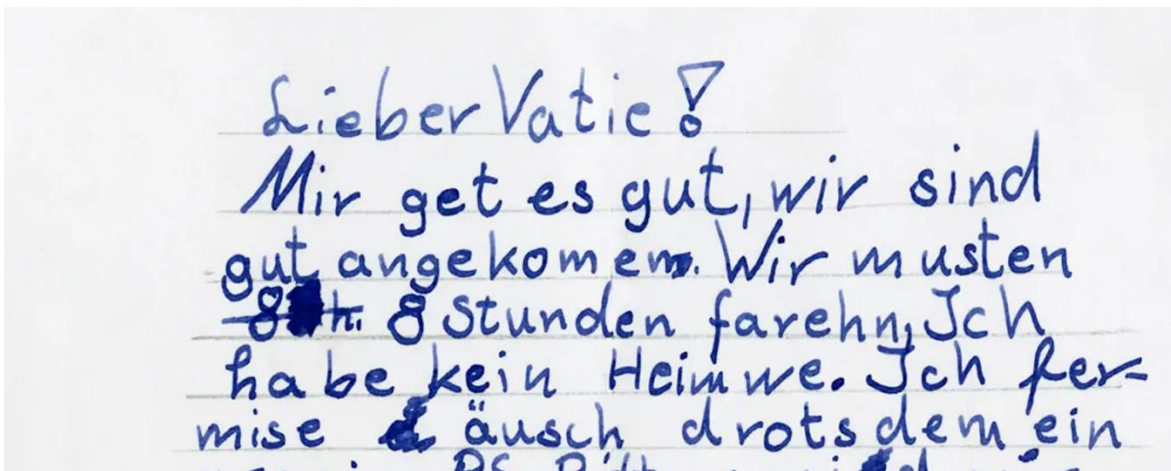 Lieber Vatie!
Mir get es gut, wir sind
gut angekomen. Wir musten
8 Stunden farehn, Ich
habe kein Heimwe. Ich fer-
mise äusch drotsdem ein
PS Bitt